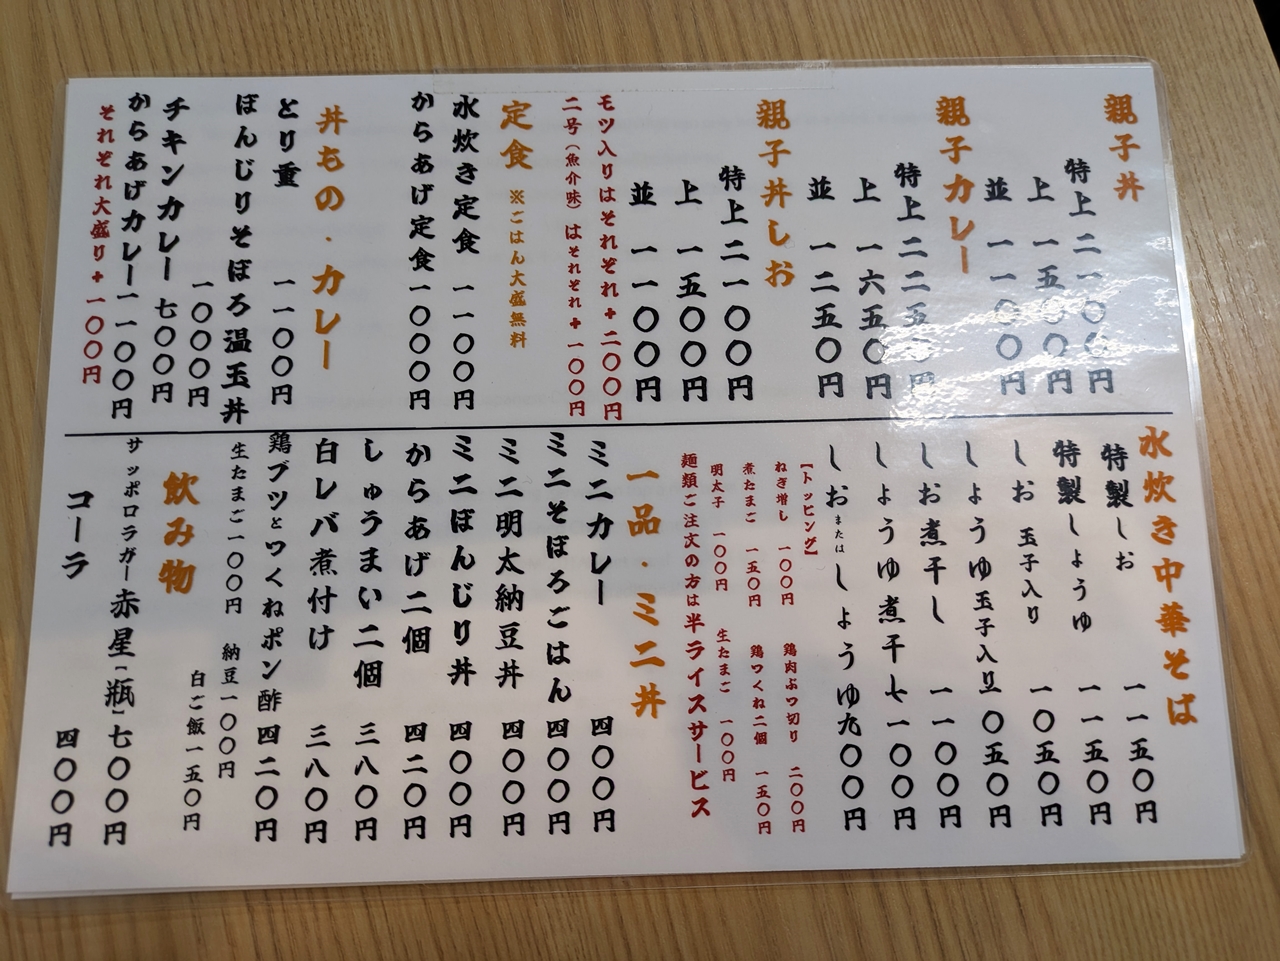 親子丼
特上 二一〇〇円
上 一五〇〇円
並 一一〇〇円
親子カレー
特上 二二五〇円
上 一六五〇円
並 一二五〇円
親子丼しお
特上 二一〇〇円
上 一五〇〇円
並 一一〇〇円
モツ入りはそれぞれ+二〇〇円
二号(魚介味)はそれぞれ+一〇〇円
定食 ※ごはん大盛無料
水炊き定食 一一〇〇円
からあげ定食一〇〇〇円
丼もの・カレー
とり重 一一〇〇円
ぼんじりそぼろ温玉丼
一〇〇〇円
チキンカレー 七〇〇円
からあげカレー一一〇〇円
それぞれ大盛り+一〇〇円
水炊き中華そば
特製しお 一一五〇円
特製しょうゆ 一一五〇円
しお 玉子入り 一〇五〇円
しょうゆ玉子入り一〇五〇円
しお煮干し 一一〇〇円
しょうゆ煮干し一一〇〇円
しおまたはしょうゆ九〇〇円
【トッピング】
ねぎ増し 一〇〇円 鶏肉ぶつ切り 二〇〇円
煮たまご 一五〇円 鶏つくね二個 一五〇円
明太子 一〇〇円 生たまご 一〇〇円
麺類ご注文の方は半ライスサービス
一品・ミニ丼
ミニカレー 四〇〇円
ミニそぼろごはん 四〇〇円
ミニ明太納豆丼 四〇〇円
ミニぼんじり丼 四〇〇円
からあげ二個 四二〇円
しゅうまい二個 三八〇円
白レバ煮付け 三八〇円
鶏ブツとつくねポン酢 四二〇円
生たまご一〇〇円 納豆一〇〇円
白ご飯一五〇円
飲み物
サッポロラガー赤星[瓶]七〇〇円
コーラ 四〇〇円